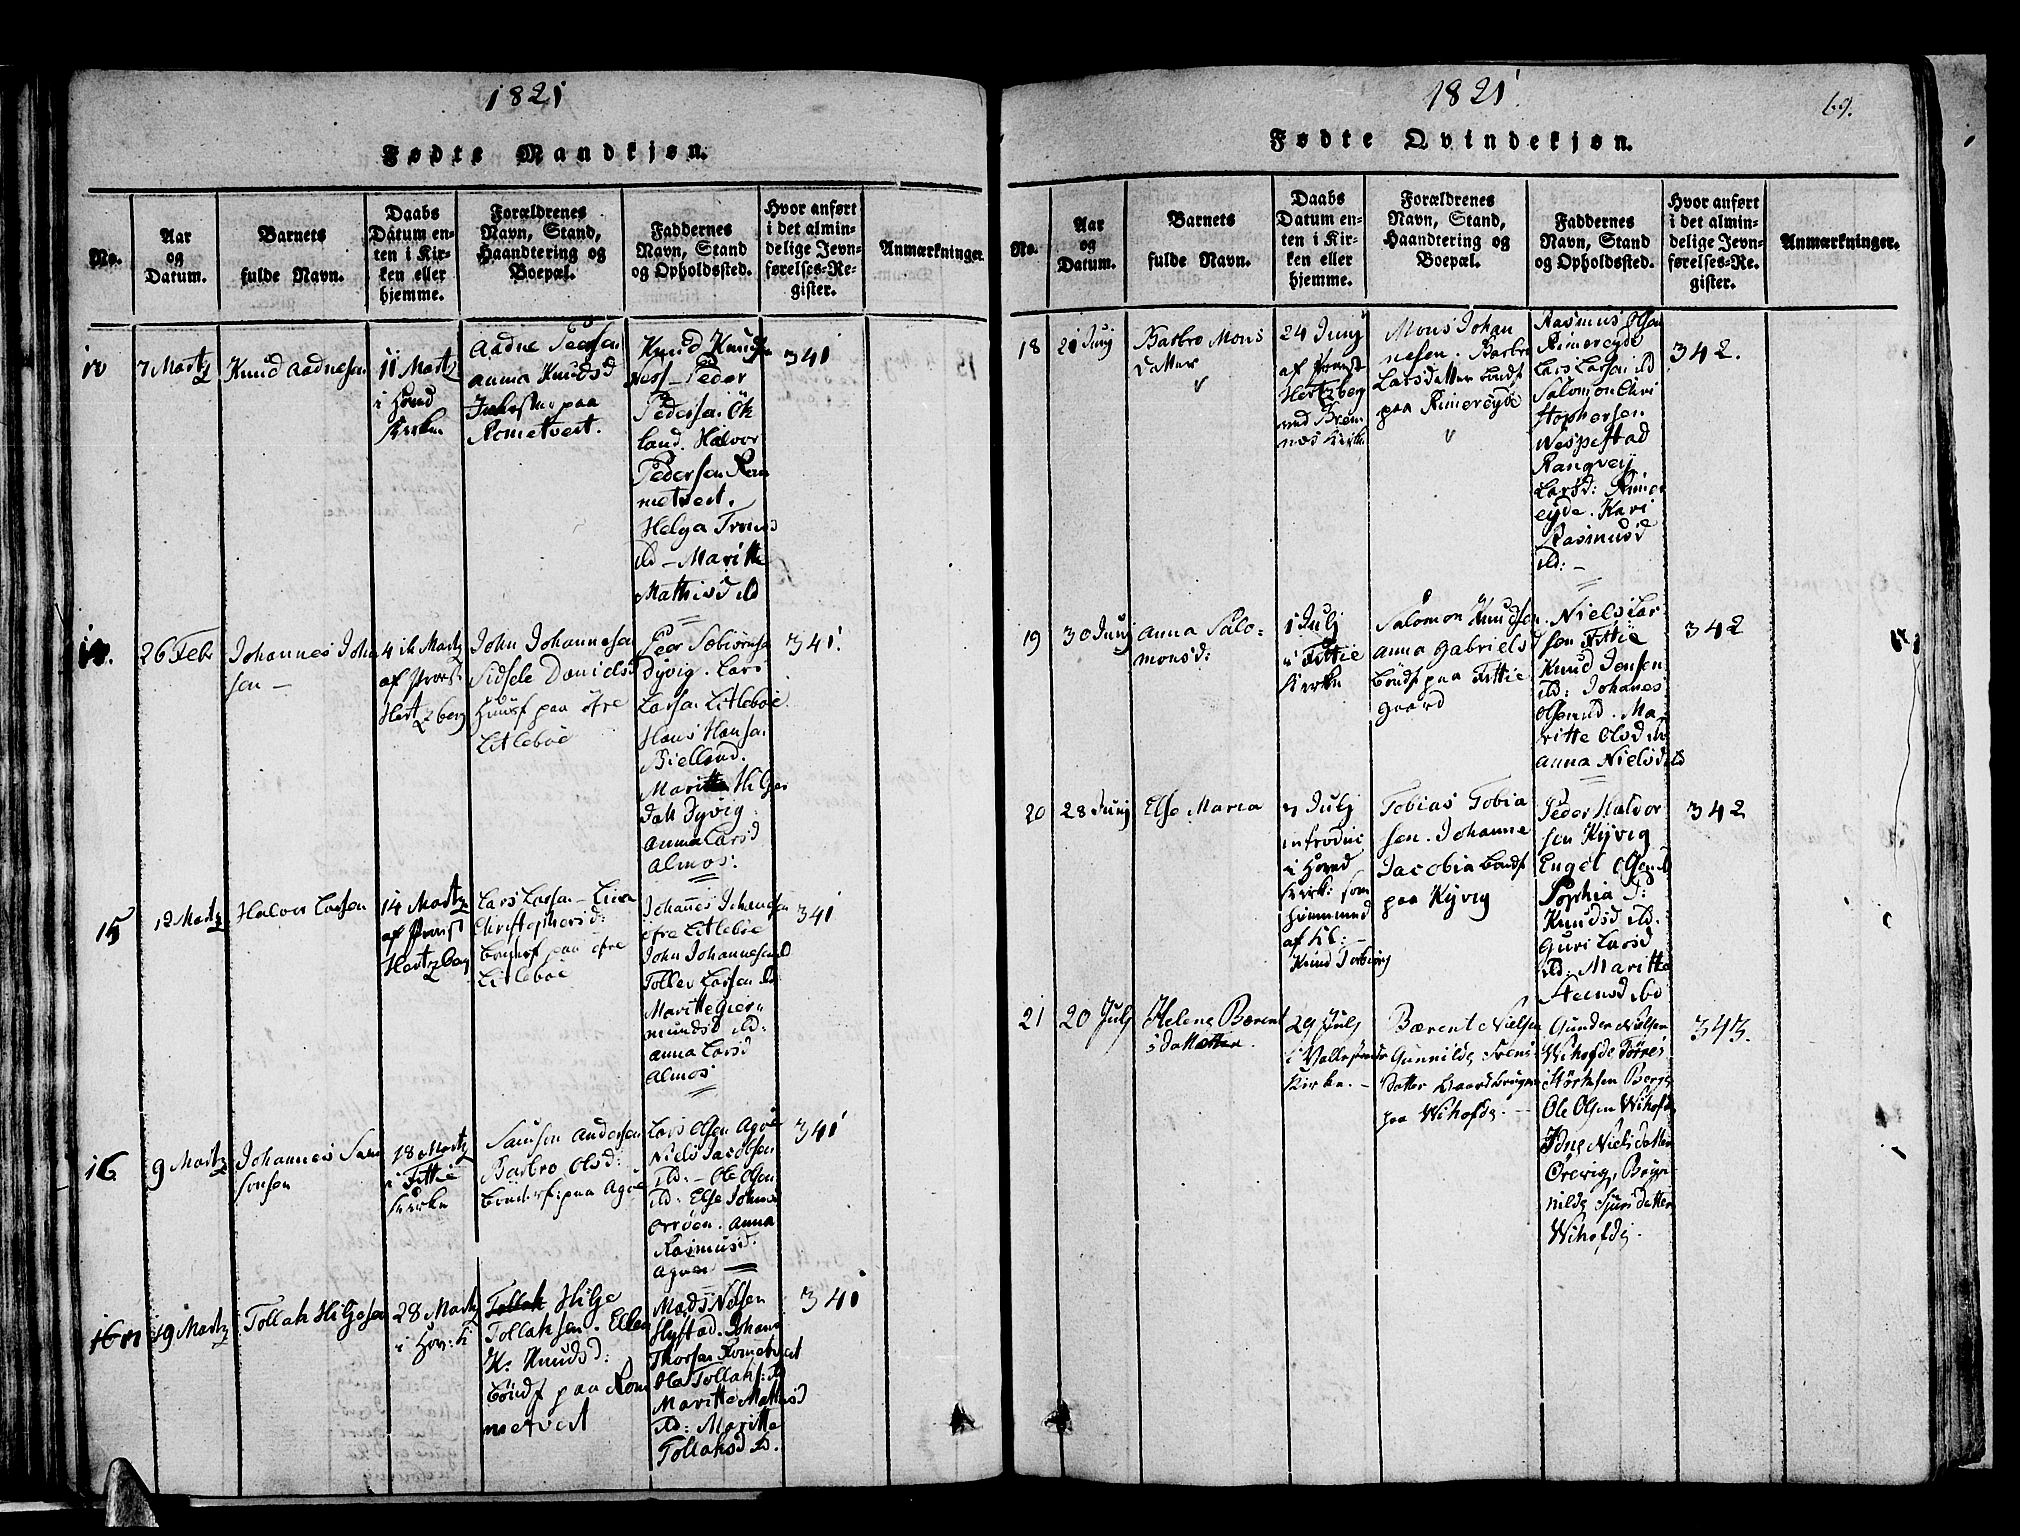 1821
Fødte Mandkjøn.
No.
Aar
og
Datum.
Barnets
fulde Navn.
Daabs
Datum en-
ten i Kir-
ken eller
hjemme.
Forældrenes
Navn, Stand,
Haandtering og
Boepæl.
Faddernes
Navn, Stand
og Opholdssted.
Hvor anført
i det almin-
delige Jevn-
førelses-Re-
gister.
Anmærkninger.
7 Martz
Knud Aadnesen
11 Martz
i Hoved
Kirken
Aadne Peersen
Anna Knudsd
paa
Rometvedt.
Knud Knuds
Næss - Peder
Pedersen Øk
land. Halvor
Pedersen Rom
metvedt.
Helga
ild - Maritte
Mathisd ild
341
14.
26 Febr
Johannes John
sen -
4 Martz
af Provst
Hertzberg
John Johannesen
Sidsele Danielsd
Huusf paa øfre
Litleboe
Peer Sebiørnsen
Dyvig. Lars
Larsen Litleboe
Hans Hansen
Bielland.
Maritte Hilges
datt Dyvig
Anna Larsd
Almos:
341
15
12 Martz
Halvor Larsen
14 Martz
af Provst
Hertzberg
Lars Larsen -
Christophersd:
Bondef paa øfre
Litleboe
Johannes Johannesen
øfre Litleboe
John Johannesen ild
Tollev Larsen ild
Maritte Gier
mundsd ild:
Anna Larsd
Almos
341
16
9 Martz
Johannes Sam
sonsen
18 Martz
i Fittie
Kirke
Samson Andersen
Barbro Olsd:
Bønderf: paa Agøe
Lars Olsen Agøe
Niels Jacobsen
ild: - Ole Olsen
ild: Else Johns
orrøen. Anna
Rasmusd.
Agøen
341
19 Martz
Tollak Hilgesen
28 Martz
i Hov: K
Tollak Hilge
Tollaksen. Ellen
K: Knudsd:
Bøndf paa Rom
metvedt
Mads Nilsen
Hystad. Johans
Thorsen Rometvedt
Ole Tollaks: ild
Maritte Mathisd
ild: Maritte
Tollaksd ild.
341
1821
69.
Fødte Qvindekjøn.
No.
Aar
og
Datum.
Barnets
fulde Navn.
Daabs
Datum en-
ten i Kir-
ken eller
hjemme.
Forældrenes
Navn, Stand,
Haandtering og
Boepæl.
Faddernes
Navn, Stand
og Opholdssted.
Hvor anført
i det almin-
delige Jevn-
førelses-Re-
gister.
Anmærkninger.
18
21 Junj
Barbro Mons
datter
24 Junj
af Provst
Hertzberg
ved Brem
næs Kirke
Mons Johan
nesen. Barbro
Larsdatter Bøndf
paa Rimereyde
Rasmus Olsen
Rimereyde
Lars Larsen ild
Salomon Chri
stophersen
Nespestad
Rangvey
Larsd: Rimer
eyde. Kari
Rasmusd
ild: -
342.
19
30 Junj
Anna Salo-
monsd:
1 Julj
i Fittie
Kirke
Salomon Knudsen
Anna Gabrielsd
Bøndf paa Fittie
gaard
Niels Lar
sen Fittie
Knud Jensen
ild: Johanes
Ma
ritte Olsd ild
Anna Nielsd ild
342
20
28 Junj
Else Maria
Julj
introduc
i Hoved
Kirk: som
hiemmed
af Kl:
Knud Torbiørn
Tobias Tobia
sen. Johanne
Jacobia Bondf
paa Kyvig
Peder Halvor
sen Kyvig
Engel Olsen ild
Sophia
Knudsd ild.
Guri Larsd
ild: Maritte
Steensd ibd
342
21
20 Julj
Helene Bærent
sdatter.
29 Julj
i Vallestrands
Kirke. -
Bærent Nielsen
Gunnilde Svens
datter Gaardbruger
paa Wihofde. -
Gunder Nielsen
Wihofde
Størksen Berge
Ole Olsen Wihofde
Nielsdatter
Ørevig, Bryn
nilde Sjursdatter
Wihofde.
343.